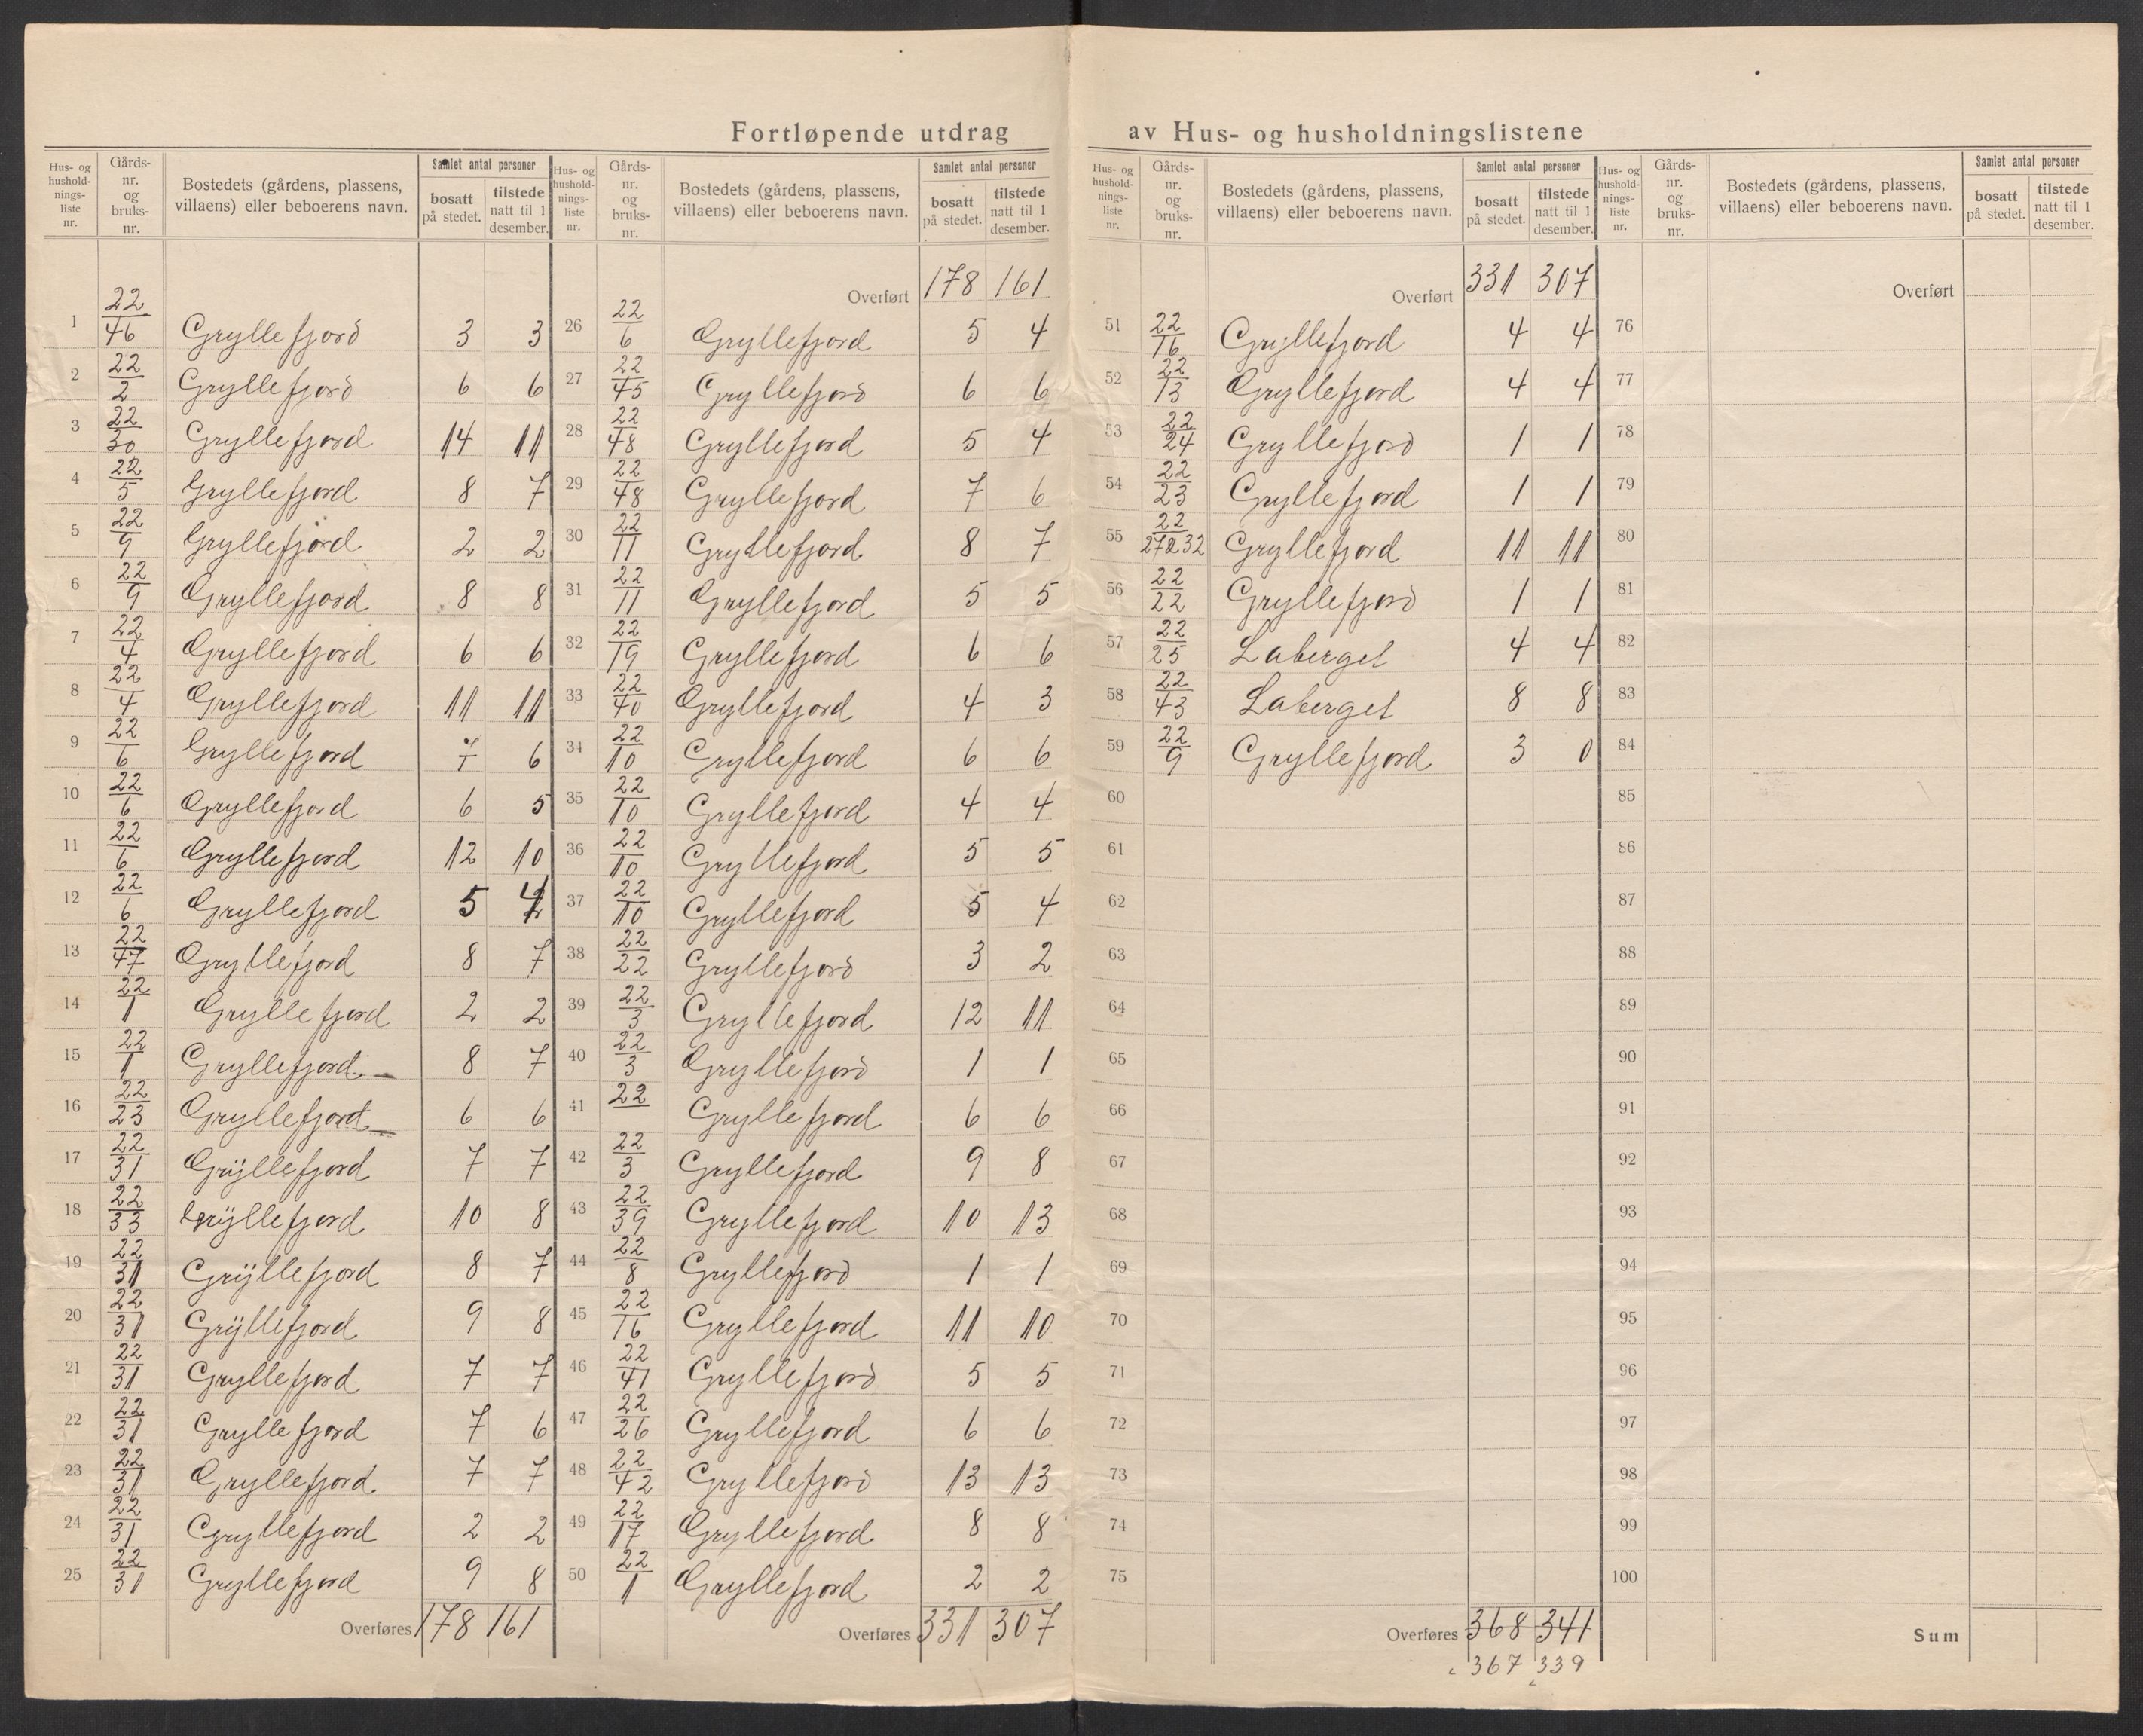 Fortløpende utdrag av Hus- og husholdningslistene
Hus- og husholdnings-liste nr. | Gårds-nr. og bruks-nr. | Bostedets (gårdens, plassens, villaens) eller beboerens navn. | Samlet antal personer bosatt på stedet. | tilstede natt til 1 desember.
1 22/46 Gryllefjord 3 3
2 22/2 Gryllefjord 6 6
3 22/30 Gryllefjord 14 11
4 22/5 Gryllefjord 8 7
5 22/9 Gryllefjord 2 2
6 22/9 Gryllefjord 8 8
7 22/4 Gryllefjord 6 6
8 22/4 Gryllefjord 11 11
9 22/6 Gryllefjord 7 6
10 22/6 Gryllefjord 6 5
11 22/6 Gryllefjord 12 10
12 22/6 Gryllefjord 5
13 22/47 Gryllefjord 8 7
14 22/1 Gryllefjord 2 2
15 22/1 Gryllefjord 8 7
16 22/23 Gryllefjord 6 6
17 22/31 Gryllefjord 7 7
18 22/33 Gryllefjord 10 8
19 22/31 Gryllefjord 8 7
20 22/31 Gryllefjord 9 8
21 22/31 Gryllefjord 7 7
22 22/31 Gryllefjord 7 6
23 22/31 Gryllefjord 7 7
24 22/31 Gryllefjord 2 2
25 22/31 Gryllefjord 9 8
Overføres 178 161
Hus- og husholdnings-liste nr. | Gårds-nr. og bruks-nr. | Bostedets (gårdens, plassens, villaens) eller beboerens navn. | Samlet antal personer bosatt på stedet. | tilstede natt til 1 desember.
Overført 178 161
26 22/6 Gryllefjord 5 4
27 22/45 Gryllefjord 6 6
28 22/48 Gryllefjord 5 4
29 22/48 Gryllefjord 7 6
30 22/11 Gryllefjord 8 7
31 22/11 Gryllefjord 5 5
32 22/19 Gryllefjord 6 6
33 22/40 Gryllefjord 4 3
34 22/10 Gryllefjord 6 6
35 22/10 Gryllefjord 4 4
36 22/10 Gryllefjord 5 5
37 22/10 Gryllefjord 5 4
38 22/22 Gryllefjord 3 2
39 22/3 Gryllefjord 12 11
40 22/3 Gryllefjord 1 1
41 22 Gryllefjord 6 6
42 22/3 Gryllefjord 9 8
43 22/39 Gryllefjord 10 13
44 22/8 Gryllefjord 1 1
45 22/16 Gryllefjord 11 10
46 22/41 Gryllefjord 5 5
47 22/26 Gryllefjord 6 6
48 22/42 Gryllefjord 13 13
49 22/17 Gryllefjord 8 8
50 22/1 Gryllefjord 2 2
Overføres 331 307
Hus- og husholdnings-liste nr. | Gårds-nr. og bruks-nr. | Bostedets (gårdens, plassens, villaens) eller beboerens navn. | Samlet antal personer bosatt på stedet. | tilstede natt til 1 desember.
Overført 331 307
51 22/16 Gryllefjord 4 4
52 22/13 Gryllefjord 4 4
53 22/24 Gryllefjord 1 1
54 22/23 Gryllefjord 1 1
55 22/ Gryllefjord 11 11
56 22/22 Gryllefjord 1 1
57 22/25 Laberget 4 4
58 22/43 Laberget 8 8
59 22/9 Gryllefjord 3 0
60
61
62
63
64
65
66
67
68
69
70
71
72
73
74
75
Overføres 368 341
367 339
Hus- og husholdnings-liste nr. | Gårds-nr. og bruks-nr. | Bostedets (gårdens, plassens, villaens) eller beboerens navn. | Samlet antal personer bosatt på stedet. | tilstede natt til 1 desember.
Overført
76
77
78
79
80
81
82
83
84
85
86
87
88
89
90
91
92
93
94
95
96
97
98
99
100
Sum